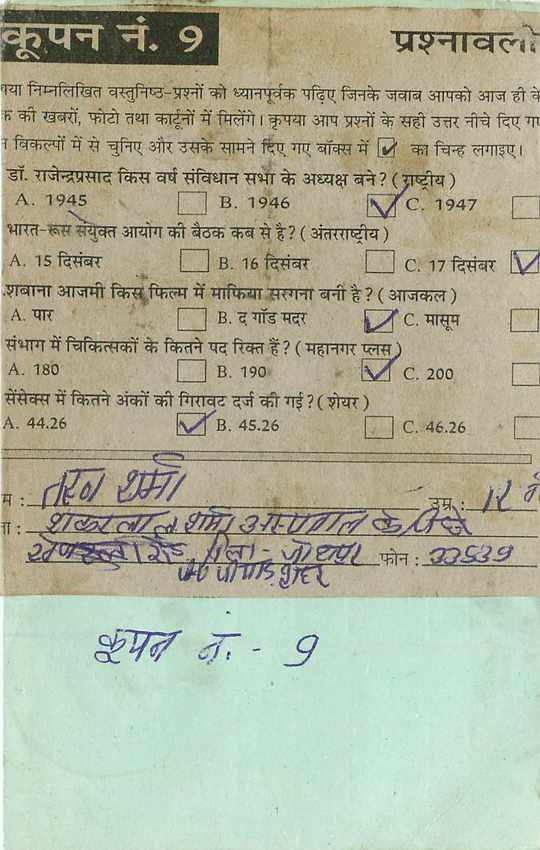 कूपन नं. 9 प्रश्नावली
या निम्नलिखित वस्तुनिष्ठ-प्रश्नों को ध्यानपूर्वक पढ़िए जिनके जवाब आपको आज ही के
की खबरों, फोटो तथा कार्टूनों में मिलेंगे। कृपया आप प्रश्नों के सही उत्तर नीचे दिए गए
विकल्पों में से चुनिए और उसके सामने दिए गए बॉक्स में ✓ का चिन्ह लगाइए।
डॉ. राजेन्द्रप्रसाद किस वर्ष संविधान सभा के अध्यक्ष बने? (राष्ट्रीय)
A. 1945 B. 1946 ✓ C. 1947
भारत-रूस संयुक्त आयोग की बैठक कब से है? (अंतरराष्ट्रीय)
A. 15 दिसंबर B. 16 दिसंबर C. 17 दिसंबर ✓
शबाना आजमी किस फिल्म में माफिया सरगना बनी है? (आजकल)
A. पार B. द गॉड मदर ✓ C. मासूम
संभाग में चिकित्सकों के कितने पद रिक्त हैं? (महानगर प्लस)
A. 180 B. 190 ✓ C. 200
सेंसेक्स में कितने अंकों की गिरावट दर्ज की गई? (शेयर)
A. 44.26 ✓ B. 45.26 C. 46.26
शर्मा उम्र : 12
शर्मा अस्पताल के
जिला - जोधपुर फोन : 33539
शहर
कूपन न. - 9